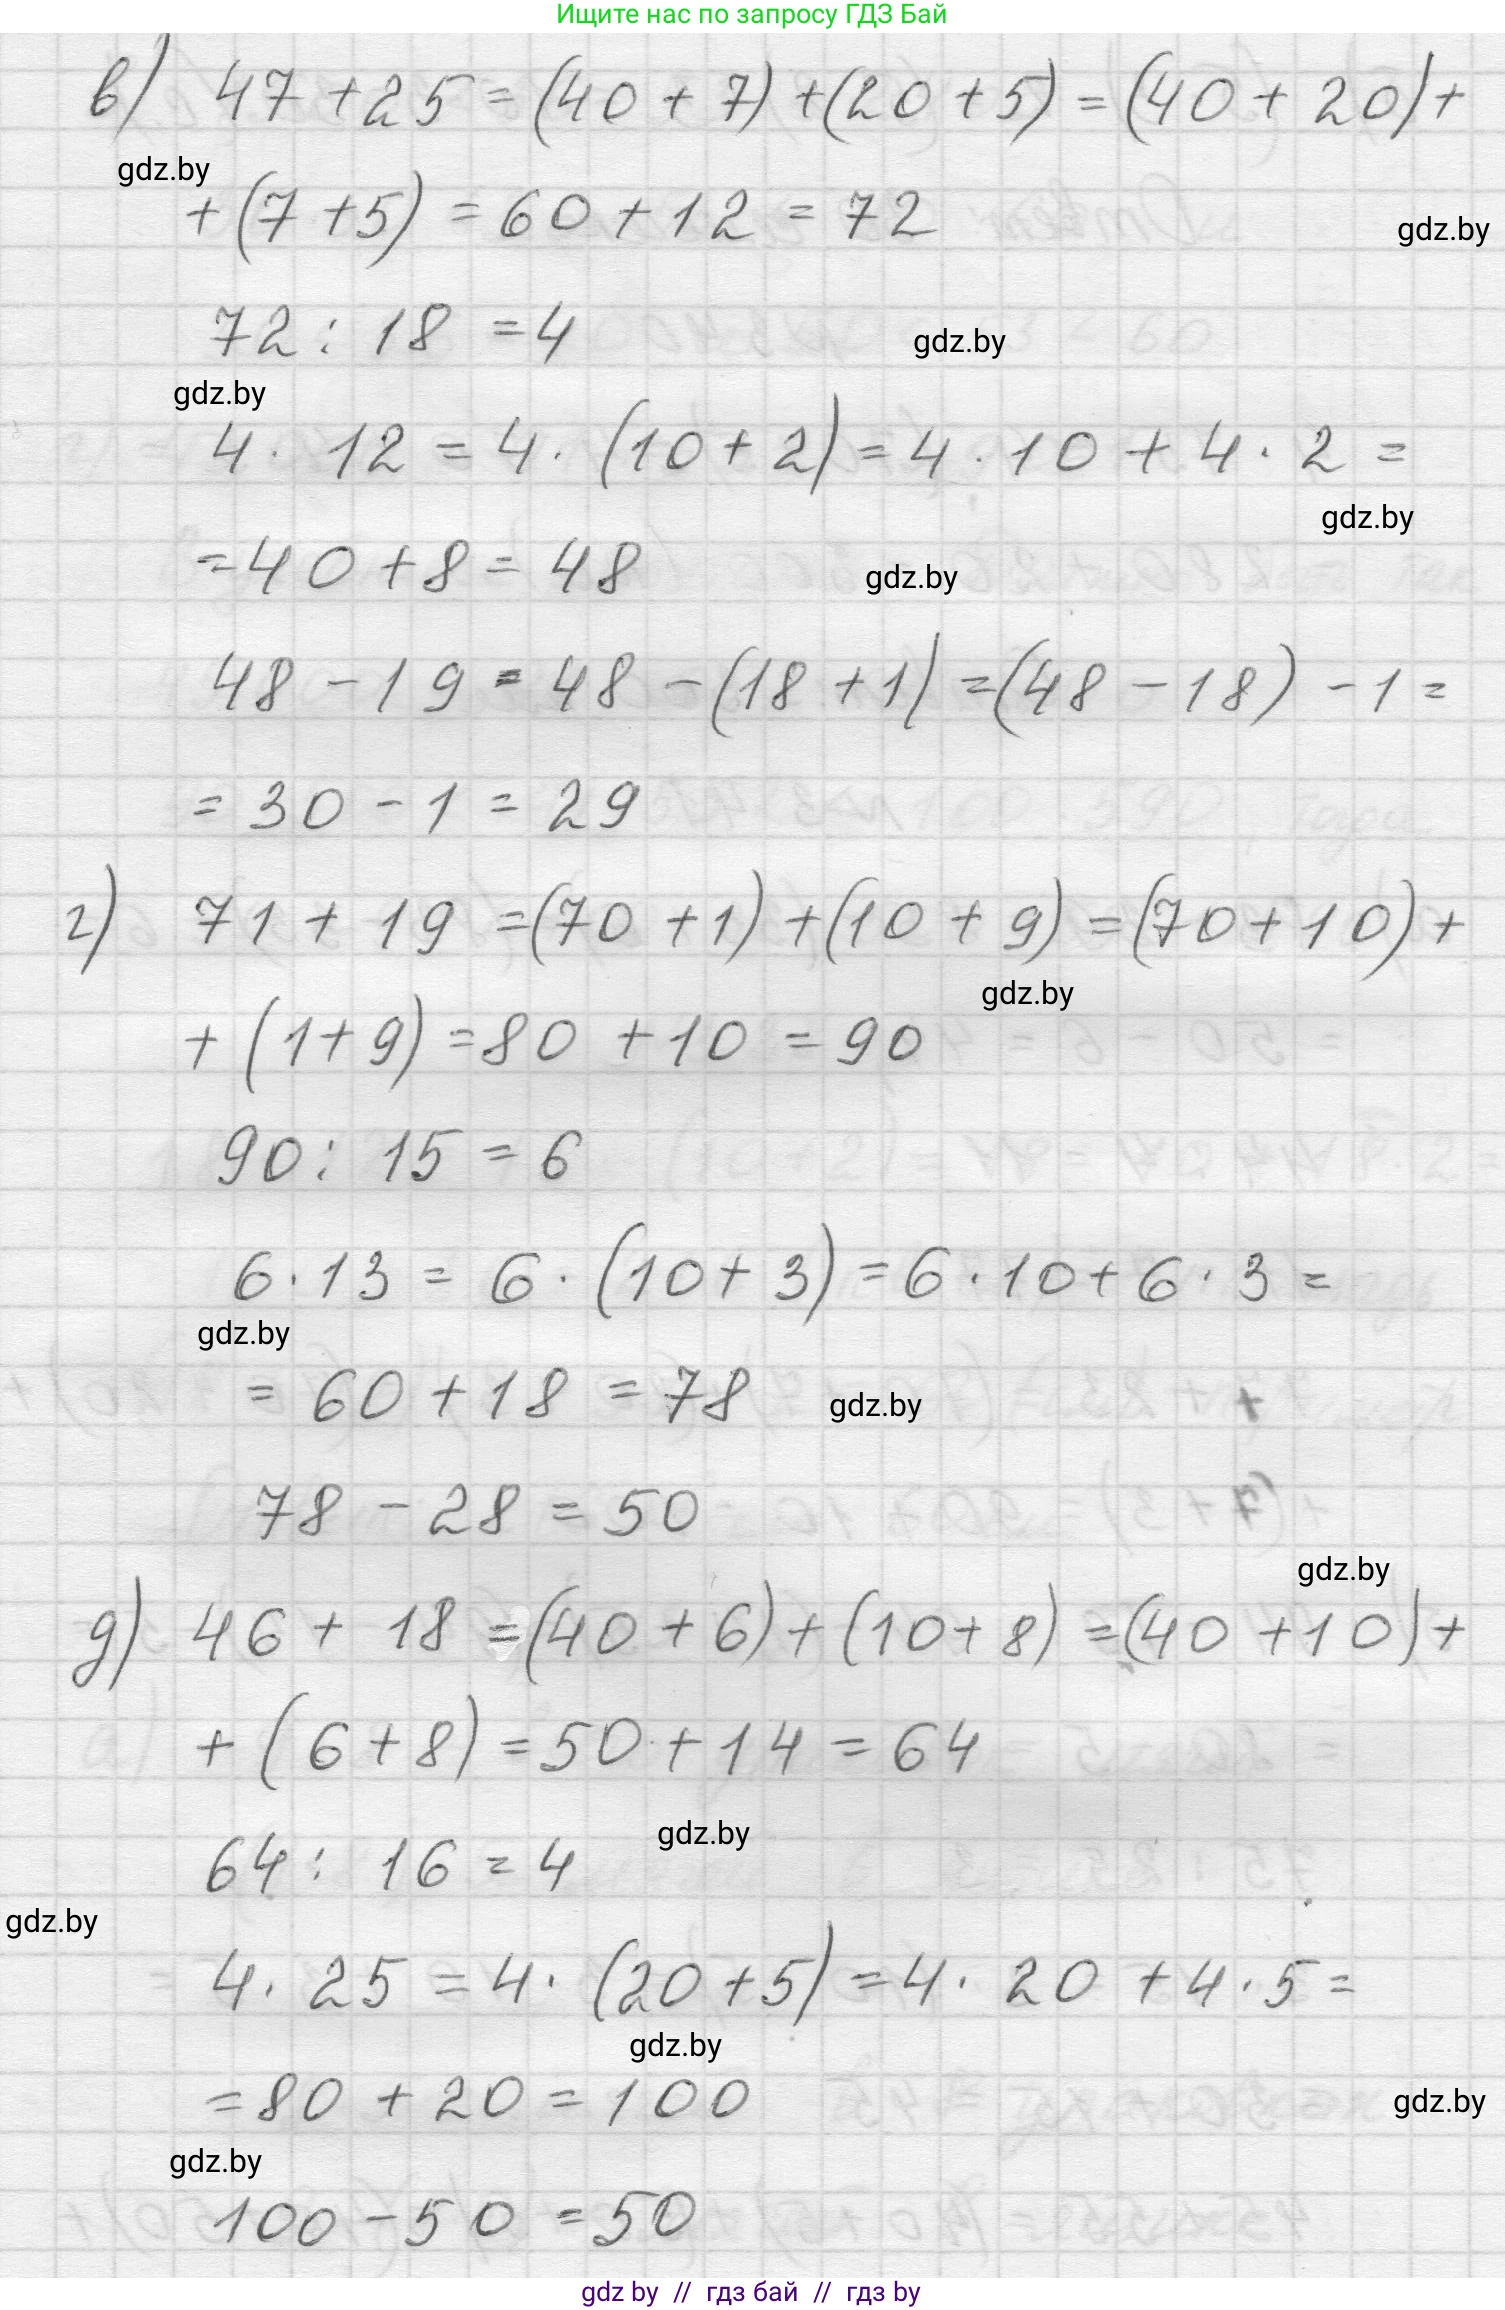 Ищите нас по запросу ГДЗ Бай
в) 47 + 25 = (40 + 7) + (20 + 5) = (40 + 20) +
gdz.by
+ (7 + 5) = 60 + 12 = 72
gdz.by
72 : 18 = 4
gdz.by
gdz.by
4 · 12 = 4 · (10 + 2) = 4 · 10 + 4 · 2 =
gdz.by
= 40 + 8 = 48
gdz.by
48 - 19 = 48 - (18 + 1) = (48 - 18) - 1 =
= 30 - 1 = 29
г) 71 + 19 = (70 + 1) + (10 + 9) = (70 + 10) +
gdz.by
+ (1 + 9) = 80 + 10 = 90
90 : 15 = 6
6 · 13 = 6 · (10 + 3) = 6 · 10 + 6 · 3 =
gdz.by
= 60 + 18 = 78
gdz.by
78 - 28 = 50
gdz.by
д) 46 + 18 = (40 + 6) + (10 + 8) = (40 + 10) +
+ (6 + 8) = 50 + 14 = 64
gdz.by
64 : 16 = 4
gdz.by
4 · 25 = 4 · (20 + 5) = 4 · 20 + 4 · 5 =
gdz.by
= 80 + 20 = 100
gdz.by
gdz.by
100 - 50 = 50
gdz by // гдз бай // гдз by